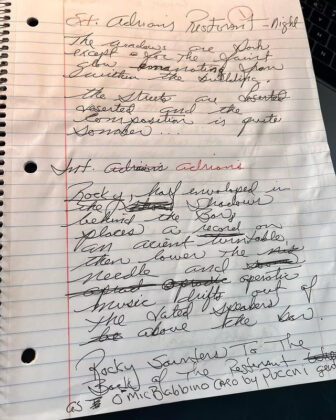 Ext. Adrians Restorant - Night
The windows are dark
except for the faint
glow
within the building.
the streets are
deserted and the
composition is quite
somber...
Int. Adrians
Rocky, half enveloped in
the shadows
behind the Bar,
places a record on
an acient turntable
then lower the
needle and
operatic
music drifts out of
the dated speakers
above the bar
Rocky Saunters To The
Back of The Restorant
as O Mio Babbino Caro by PUCCINI